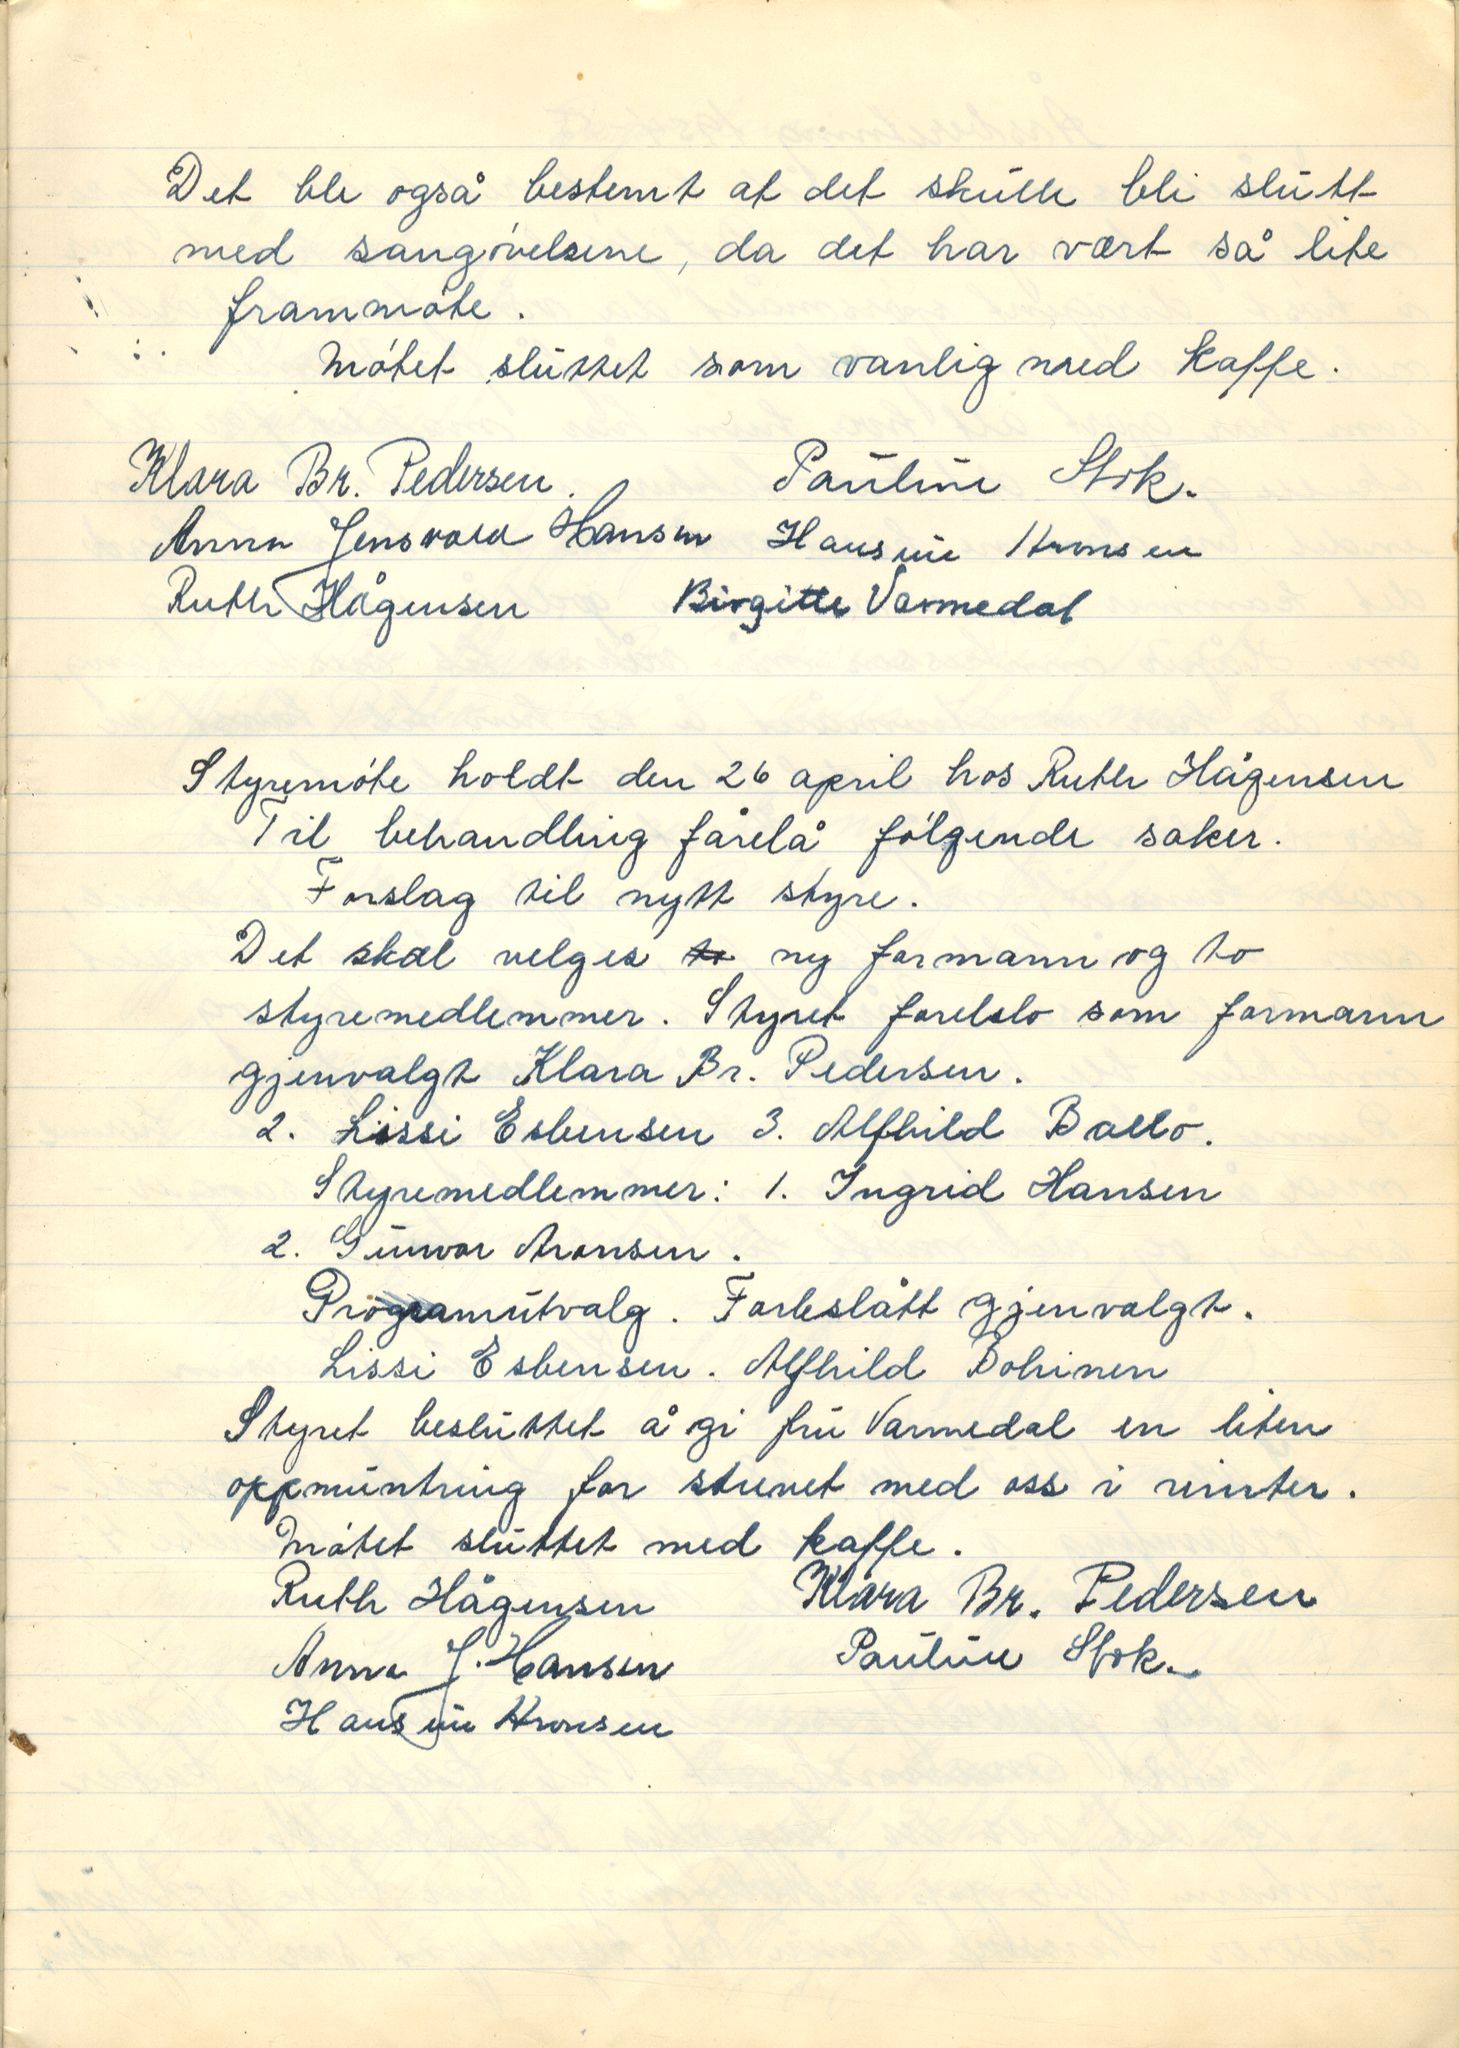 Det ble også bestemt at det skulle bli slutt
med sangøvelsene, da det har vært så lite
frammøte.
Møtet sluttet som vanlig med kaffe.
Klara Br. Pedersen. Pauline Stok.
Anna Jensvold Hansen Hansine Aronsen
Ruth Hågensen Birgitte Varmedal
Styremøte holdt den 26 april hos Ruth Hågensen
Til behandling fårelå følgende saker.
Forslag til nytt styre.
Det skal velges to ny formann og to
styremedlemmer. Styret forelslo som formann
gjenvalgt Klara Br. Pedersen.
2. Lissi Esbensen 3. Alfhild Ballo.
Styremedlemmer: 1. Ingrid Hansen
2. Gunvor Aronsen.
Programutvalg. Foreslått gjenvalgt.
Lissi Esbensen. Alfhild Bohinen
Styret besluttet å gi fru Varmedal en liten
oppmuntring for strevet med oss i vinter.
Møtet sluttet med kaffe.
Ruth Hågensen Klara Br. Pedersen
Anna J. Hansen Pauline Stok.
Hansine Aronsen